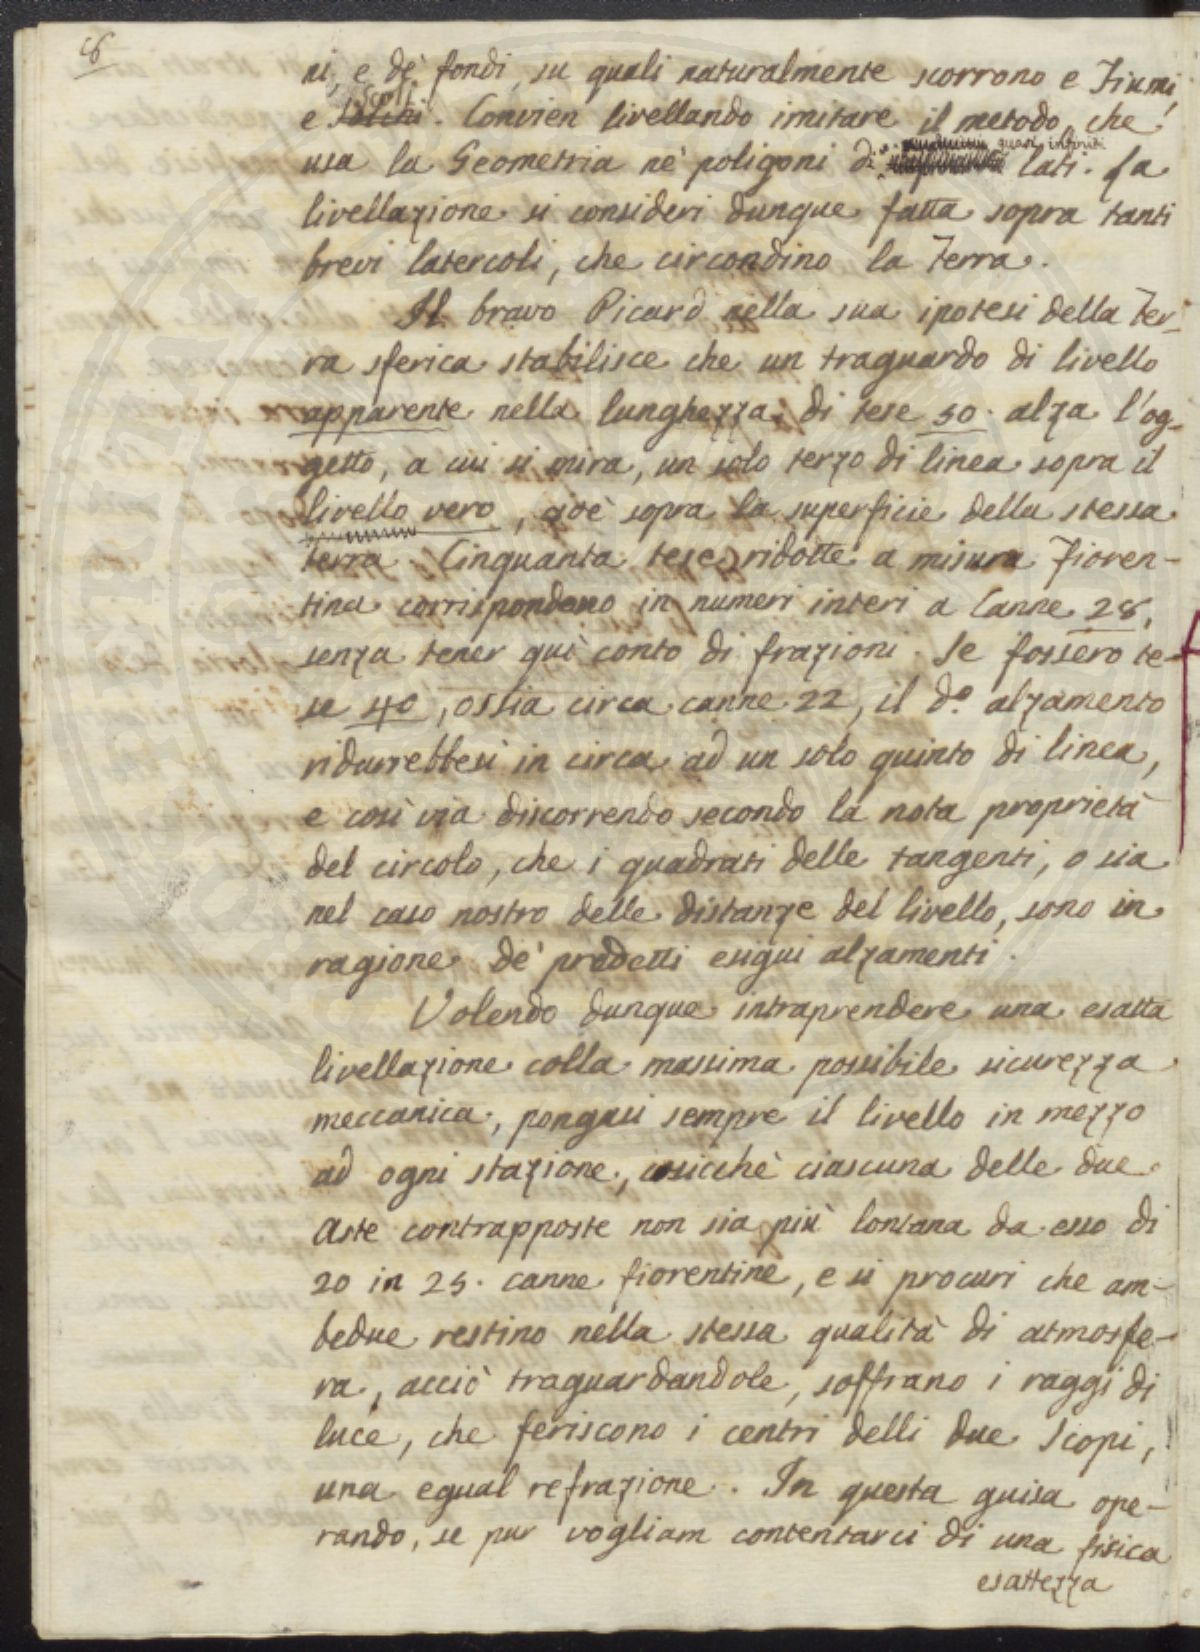 6
ni, e de' fondi, su quali naturalmente scorrono e Fiumi,
e Scoli. Convien livellando imitare il metodo, che
usa la Geometria ne' poligoni di quasi infiniti lati. La
livellazione si consideri dunque fatta sopra tanti
brevi latercoli, che circondino la Terra.
Il bravo Picard nella sua ipotesi della Ter-
ra sferica stabilisce che un traguardo di livello
apparente nella lunghezza di tese 50. alza l'og-
getto, a cui si mira, un solo terzo di linea sopra il
livello vero, cioè sopra la superficie della stessa
terra. Cinquanta tese ridotte a misura Fioren-
tina corrispondono in numeri interi a Canne 28,
senza tener quì conto di frazioni. Se fossero te-
se 40, ossia circa canne 22, il d.º alzamento
ridurrebbesi in circa ad un solo quinto di linea,
e così via discorrendo secondo la nota proprietà
del circolo, che i quadrati delle tangenti, o sia
nel caso nostro delle distanze del livello, sono in
ragione de' predetti esigui alzamenti.
Volendo dunque intraprendere una esatta
livellazione colla massima possibile sicurezza
meccanica, pongasi sempre il livello in mezzo
ad ogni stazione, cosicchè ciascuna delle due
Aste contrapposte non sia più lontana da esso di
20 in 25. canne fiorentine, e si procuri che am-
bedue restino nella stessa qualità di atmosfe-
ra, acciò traguardandole, soffrano i raggi di
luce, che feriscono i centri delli due Scopi,
una egual refrazione. In questa guisa ope-
rando, se pur vogliam contentarci di una fisica
esattezza